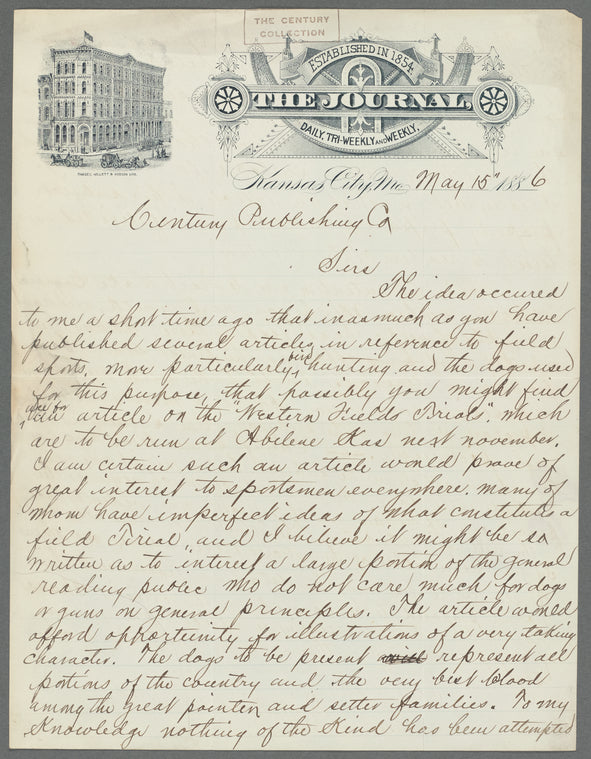 THE CENTURY
COLLECTION
ESTABLISHED IN 1854.
THE JOURNAL,
DAILY, TRI-WEEKLY AND WEEKLY.
Kansas City, Mo. May 15" 1886
Century Publishing Co
Sirs
The idea occured
to me a short time ago that inasmuch as you have
published several articles in reference to field
sports, more particularly bird hunting and the dogs used
for this purpose, that possibly you might find
use for
an article on the "Western Fields Trials". which
are to be run at Abilene Kas next november.
I am certain such an article would prove of
great interest to sportsmen everywhere. many of
whom have imperfect ideas of what constitutes a
field Trial, and I believe it might be so
written as to interest a large portion of the general
reading public who do not care much for dogs
or guns on general principles. The article would
afford opportunity for illustrations of a very taking
character. The dogs to be present will represent all
portions of the country and the very best blood
among the great pointer and setter families. To my
Knowledge nothing of the Kind has been attempted